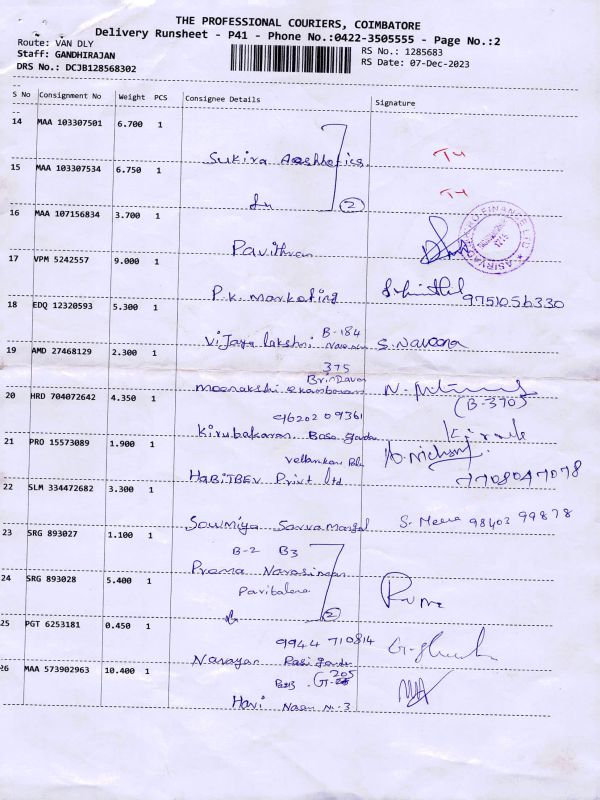 THE PROFESSIONAL COURIERS, COIMBATORE
Delivery Runsheet - P41 - Phone No.:0422-3505555 - Page No.:2
Route: VAN DLY
Staff: GANDHIRAJAN
DRS No.: DCJB128568302
RS No.: 1285683
RS Date: 07-Dec-2023
S No Consignment No Weight PCS Consignee Details Signature
14 MAA 103307501 6.700 1
Sukira
15 MAA 103307534 6.750 1
2
16 MAA 107156834 3.700 1
Pavithran
17 VPM 5242557 9.000 1
P.K. marketing 9751056330
18 EDQ 12320593 5.300 1
B-184
Vijaya lakshmi S. Naveena
19 AMD 27468129 2.300 1
375
Brindavan
meenakshi
20 HRD 704072642 4.350 1
(B-370)
96202 09361
Kirubakaran
21 PRO 15573089 1.900 1
HABITBEV Privt ltd 7708047078
22 SLM 334472682 3.300 1
Sowmiya S. Meena 98403 99878
23 SRG 893027 1.100 1
B-2 B3
Prema Narasiman
24 SRG 893028 5.400 1
2
25 PGT 6253181 0.450 1
9944 710814
Narayan
26 MAA 573902963 10.400 1
205
Hari